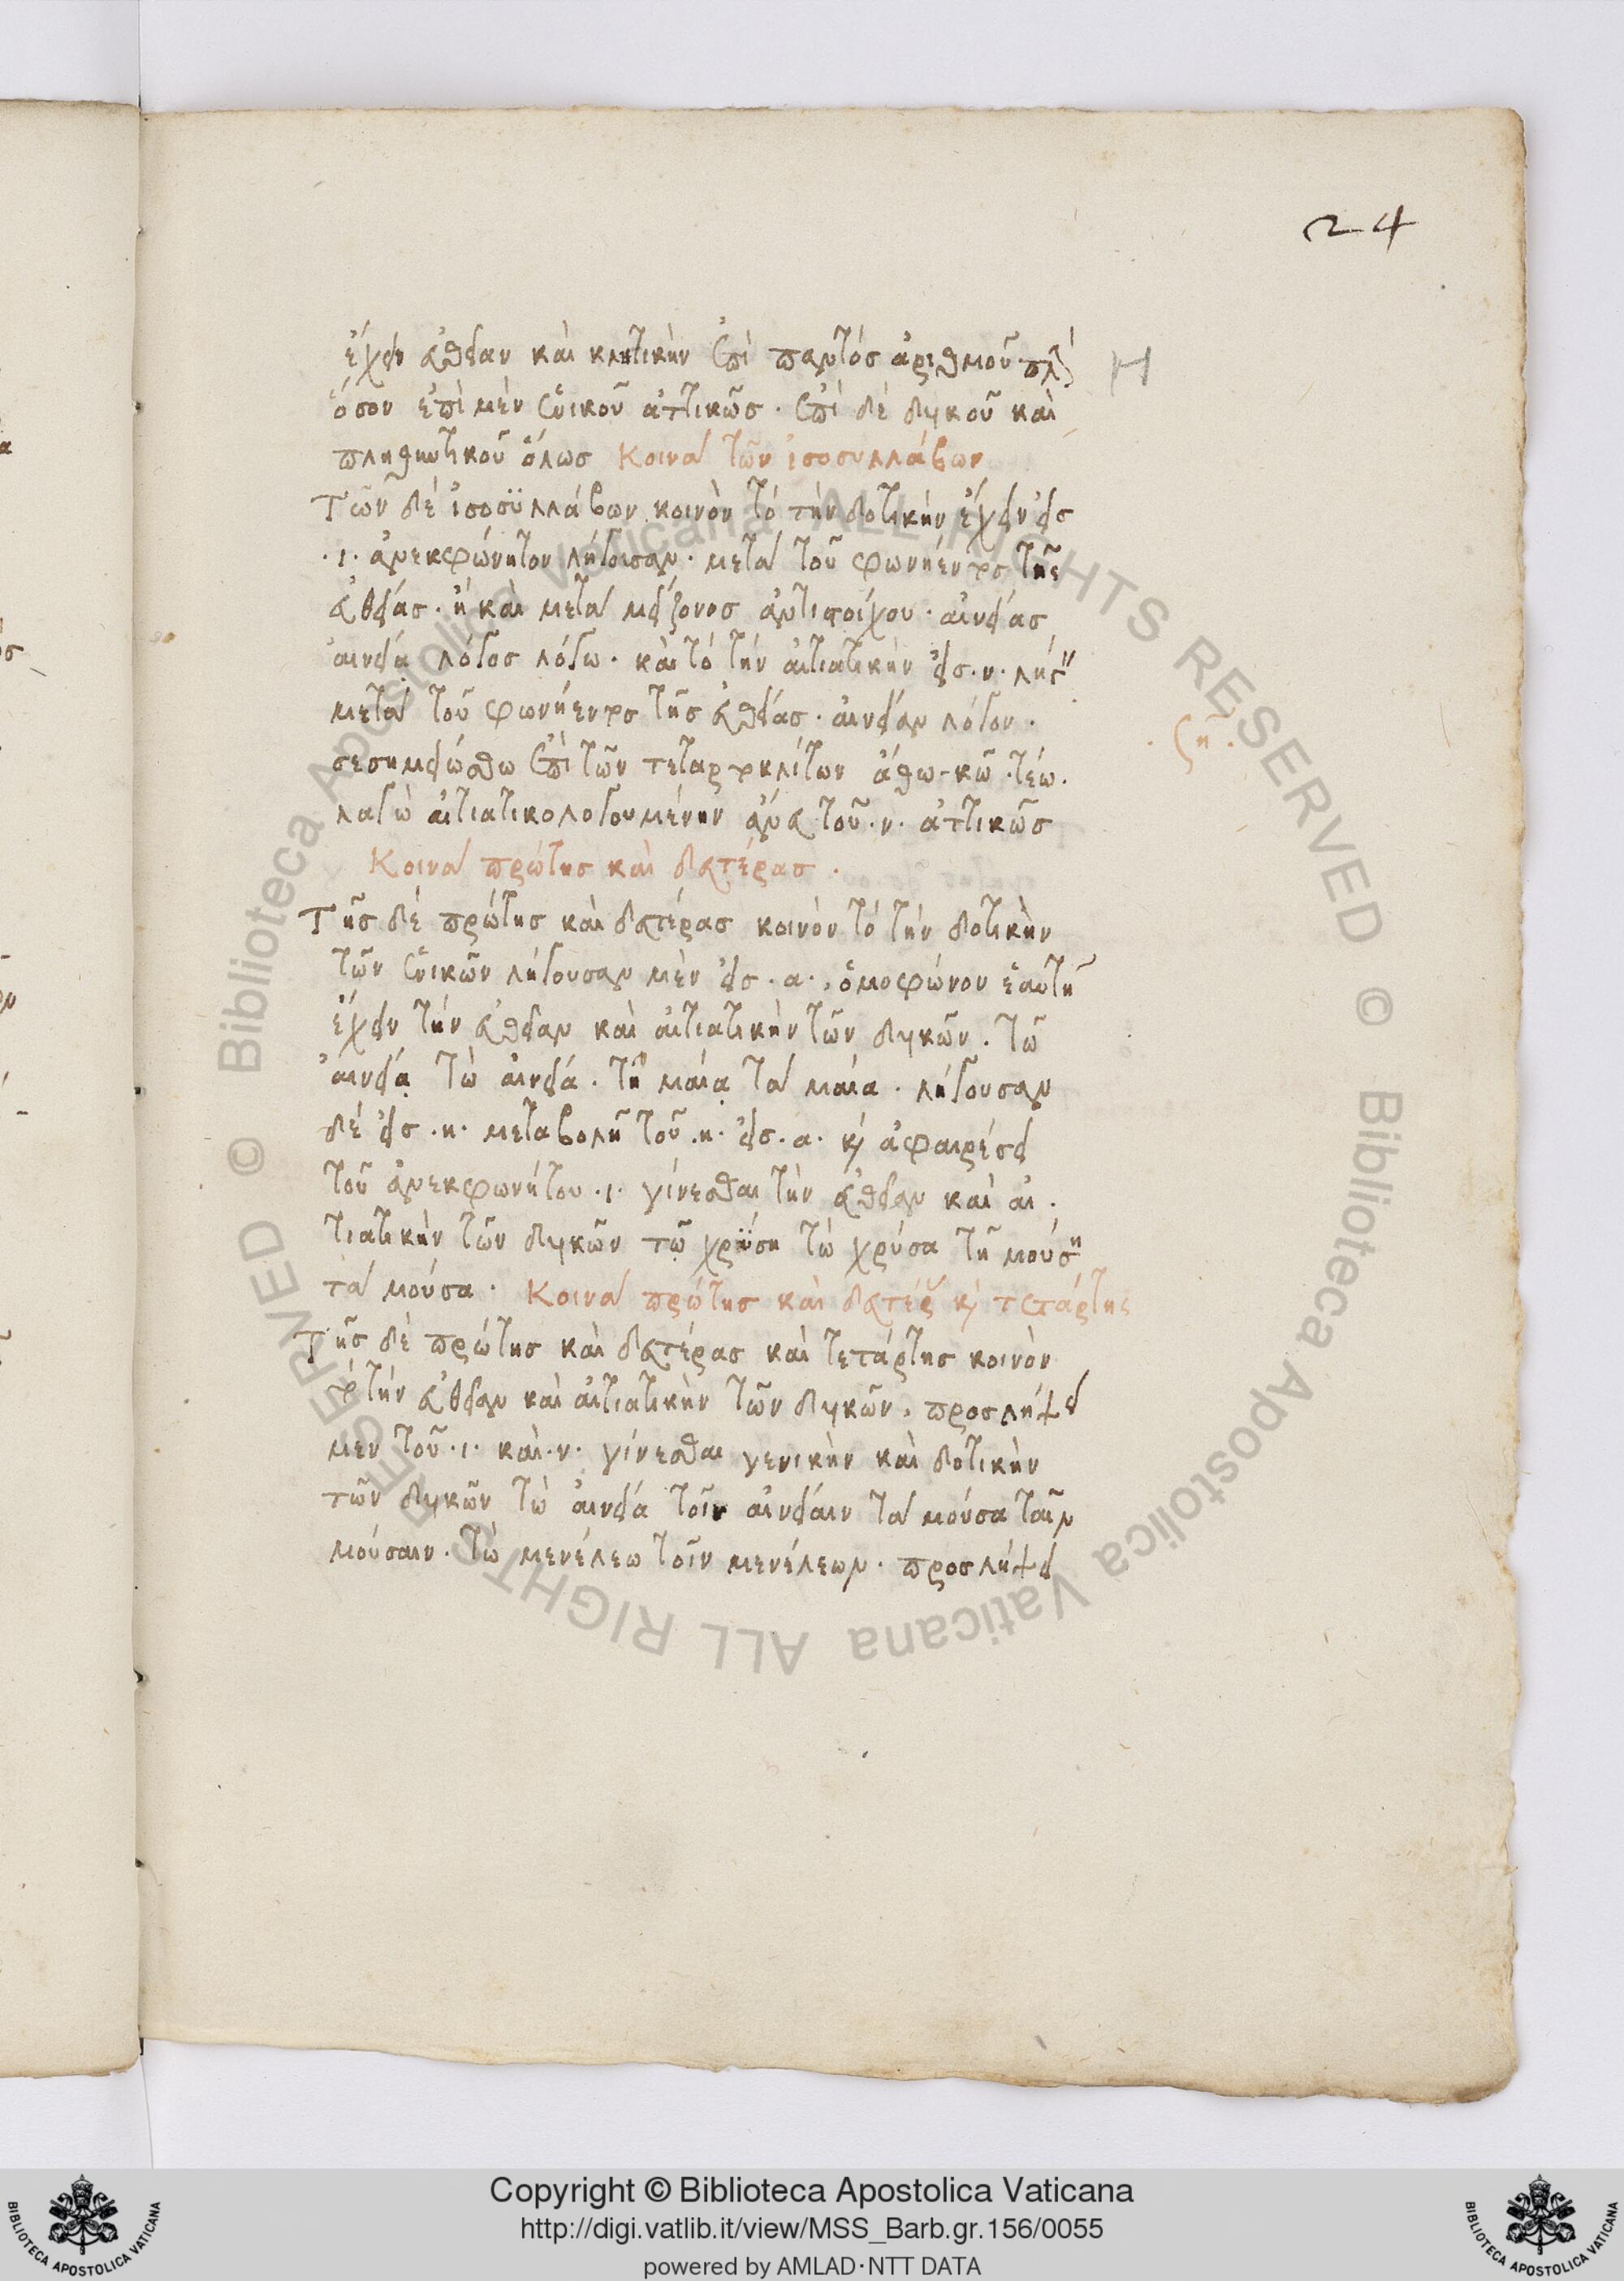 24
ἔχειν εὐθεῖαν καὶ κλητικὴν ἐπὶ παντὸς ἀριθμοῦ
ὅσον ἐπὶ μὲν ἑνικοῦ ἀττικῶς · ἐπὶ δὲ δυικοῦ καὶ
πληθυντικοῦ ὅλως Κοινὰ τῶν ἰσοσυλλάβων
Τῶν δὲ ἰσοσϋλλάβων κοινὸν τὸ τὴν δοτικὴν ἔχειν εἰς
·ι· ἀνεκφώνητον λήγουσαν · μετὰ τοῦ φωνήεντος τῆς
εὐθείας · ἢ καὶ μετὰ μείζονος ἀντιστοίχου · αἰνείας
αἰνείᾳ λόγος λόγω · καὶ τὸ τὴν αἰτιατικὴν εἰς ·ν·
μετὰ τοῦ φωνήεντος τῆς εὐθείας · αἰνείαν λόγον ·
σεσημειώσθω ἐπὶ τῶν τεταρτοκλίτων ἄθω · κῶ · τέω ·
λαγὼ αἰτιατικολογουμένην ἄνευ τοῦ ·ν· ἀττικῶς
· ση ·
Κοινὰ πρώτης καὶ δευτέρας ·
Τῆς δὲ πρώτης καὶ δευτέρας κοινὸν τὸ τὴν δοτικὴν
τῶν ἑνικῶν λήγουσαν μὲν εἰς ·α· , ὁμοφώνον ἑαυτῆ
ἔχειν τὴν εὐθεῖαν καὶ αἰτιατικὴν τῶν δυικῶν · τῶ
αἰνείᾳ τὼ αἰνεία · τῆ μαίᾳ τὰ μαία · λήγουσαν
δὲ εἰς ·η· μεταβολῆ τοῦ ·η· εἰς ·α· κ̀ ἀφαιρέσει
τοῦ ἀνεκφωνήτου ·ι· γίνεσθαι τὴν εὐθεῖαν καὶ αἰ ·
τιατικὴν τῶν δυικῶν τῷ χρύση τὼ χρύσα τῆ μούση
τὰ μούσα · Κοινὰ πρώτης καὶ δευτέρ κ̀ τετάρτης
Τῆς δὲ πρώτης καὶ δευτέρας καὶ τετάρτης κοινὸν
τὸ τὴν εὐθεῖαν καὶ αἰτιατικὴν τῶν δυικῶν , προσλήψει
μεν τοῦ ·ι· καὶ ·ν· γίνεσθαι γενικὴν καὶ δοτικὴν
τῶν δυικῶν τὼ αἰνεία τοῖν αἰνείαιν τὰ μούσα ταῖν
μούσαιν · τὼ μενέλεω τοῖν μενέλεων · προσλήψει
Copyright © Biblioteca Apostolica Vaticana
http://digi.vatlib.it/view/MSS_Barb.gr.156/0055
powered by AMLAD·NTT DATA